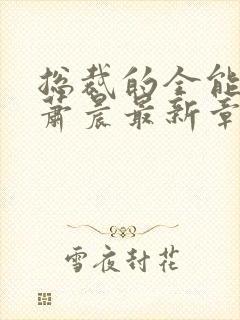 总裁的全能
萧晨最新章
雪夜封花